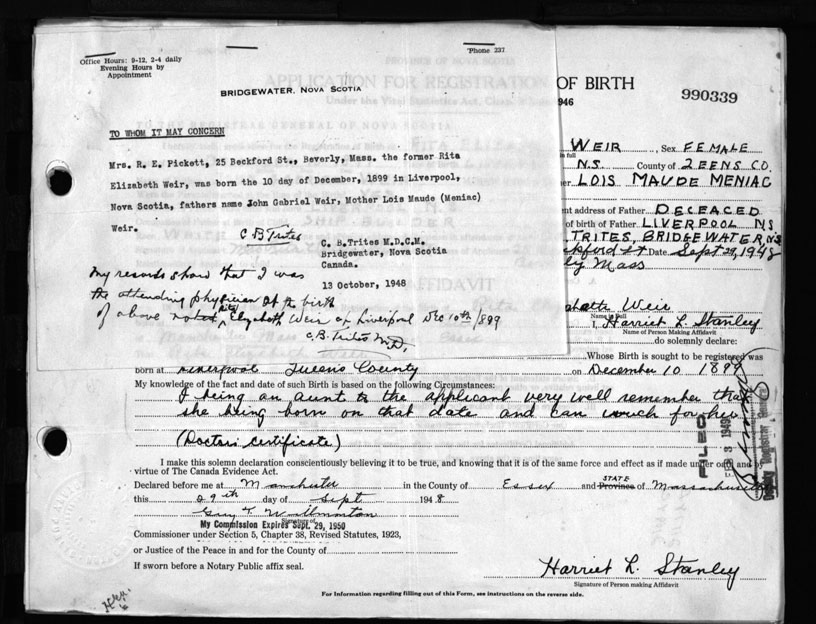 Office Hours: 9-12, 2-4 daily
Evening Hours by
Appointment
'Phone 237
BRIDGEWATER, NOVA SCOTIA
TO WHOM IT MAY CONCERN
Mrs. R. E. Pickett, 25 Beckford St., Beverly, Mass. the former Rita
Elizabeth Weir, was born the 10 day of December, 1899 in Liverpool,
Nova Scotia, fathers name John Gabriel Weir, Mother Lois Maude (Meniac)
Weir.
C B Trites
C. B. Trites M.D.C.M.
Bridgewater, Nova Scotia
Canada.
13 October, 1948
My records show that I was
the attending physician at the birth
of above noted Rita Elizabeth Weir at Liverpool Dec 10th/899
C.B. Trites M.D.
PROVINCE OF NOVA SCOTIA
APPLICATION FOR REGISTRATION OF BIRTH
Under the Vital Statistics Act,
946
990339
WEIR, Sex FEMALE
N.S. County of 2EENS CO.
LOIS MAUDE MENIAC
nt address of Father DECEACED
of birth of Father LIVERPOOL N.S.
TRITES, BRIDGEWATER, N.S
ckford St Date Sept 29, 1948
ly Mass
AFFIDAVIT
abette Weir
Name in Full
I, Harriet L Stanley
Name of Person Making Affidavit
do solemnly declare:
Whose Birth is sought to be registered was
born at Liverpool Queens County on December 10 1899
My knowledge of the fact and date of such Birth is based on the following Circumstances:
I being an aunt to the applicant very well remember that
she being born on that date and can vouch for her
(Doctors Certificate)
I make this solemn declaration conscientiously believing it to be true, and knowing that it is of the same force and effect as if made under oath and by
virtue of The Canada Evidence Act.
Declared before me at Manchester in the County of Essex and STATE Province of Massachusetts
this 29th day of Sept 1948
Signature of
My Commission Expires Sept. 29, 1950
Commissioner under Section 5, Chapter 38, Revised Statutes, 1923,
or Justice of the Peace in and for the County of
If sworn before a Notary Public affix seal.
Harriet L. Stanley
Signature of Person making Affidavit
For Information regarding filling out of this Form, see instructions on the reverse side.
FILED
3 1949